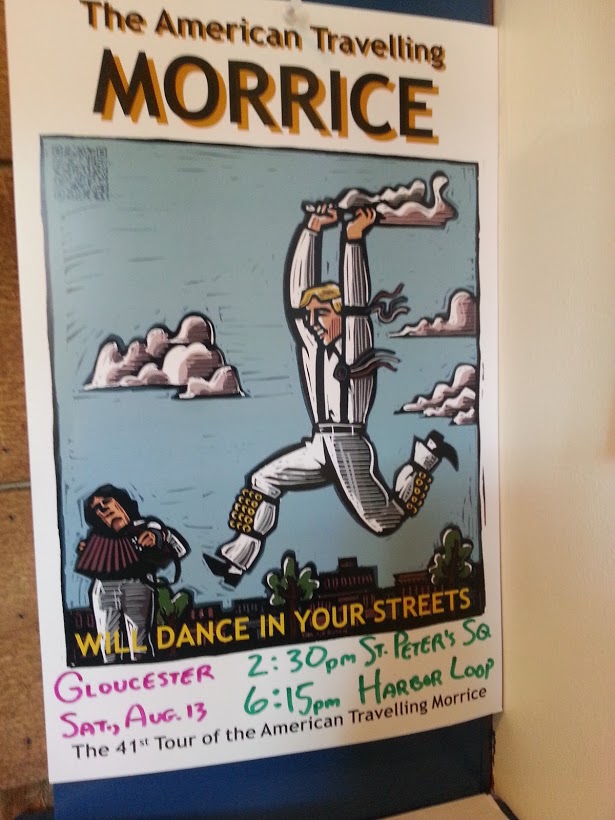 The American Travelling
MORRICE
WILL DANCE IN YOUR STREETS
GLOUCESTER 2:30pm ST. PETER'S SQ
SAT., AUG. 13 6:15pm HARBOR LOOP
The 41st Tour of the American Travelling Morrice